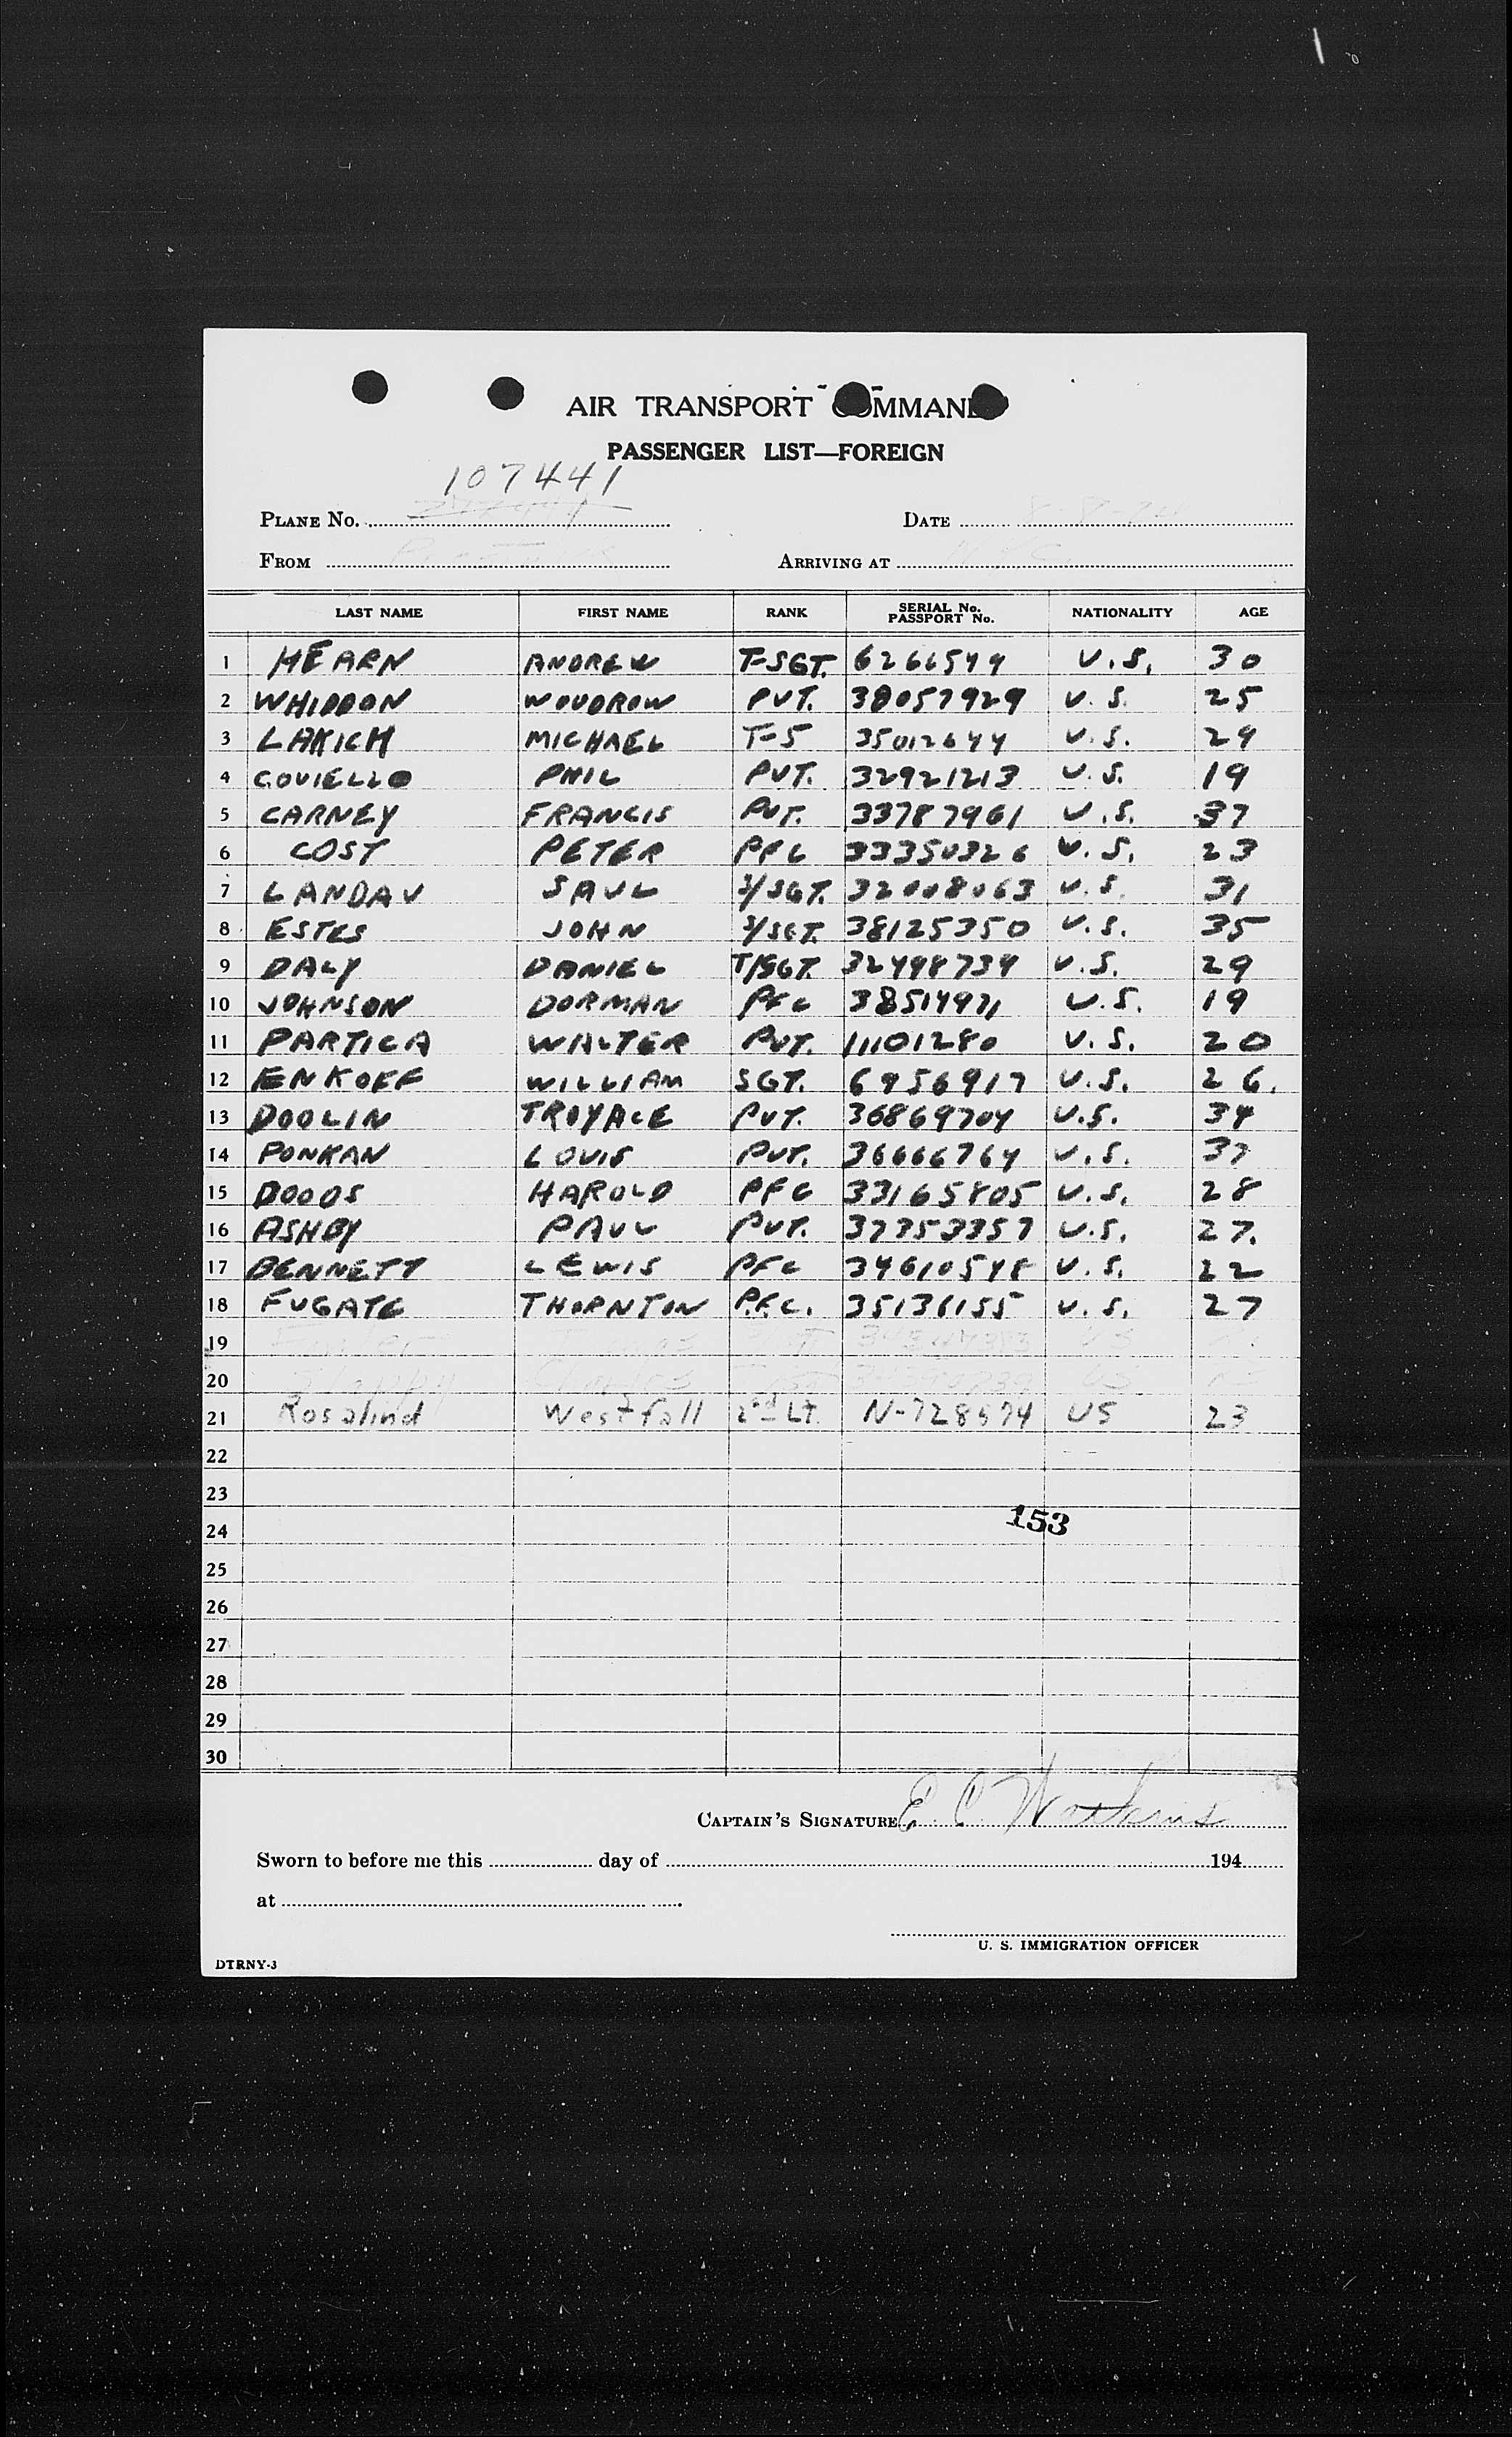 AIR TRANSPORT COMMAND
PASSENGER LIST—FOREIGN
107441
PLANE No. DATE
FROM ARRIVING AT
LAST NAME FIRST NAME RANK SERIAL No. PASSPORT No. NATIONALITY AGE
1 HEARN ANDREW T-SGT. U.S. 30
2 WHIDDON WOODROW PVT. 38057929 U.S. 25
3 LAKICH MICHAEL T-5 35012644 U.S. 29
4 COVIELLO PHIL PVT. 32921213 U.S. 19
5 CARNEY FRANCIS PVT. 33787961 U.S. 37
6 COST PETER PFC 33350326 U.S. 23
7 LANDAU SAUL S/SGT. 32008063 U.S. 31
8 ESTES JOHN S/SGT. 38125350 U.S. 35
9 DALY DANIEL T/SGT. 32498739 U.S. 29
10 JOHNSON DORMAN PFC U.S. 19
11 PARTICA WALTER PVT. 11101280 U.S. 20
12 ENKOFF WILLIAM SGT. 6956917 U.S. 26.
13 DOOLIN TROYALE PVT. 36869704 U.S. 34
14 PONKAN LOUIS PVT. 36666764 U.S. 37
15 DOODS HAROLD PFC 33165805 U.S. 28
16 ASHBY PAUL PVT. 37353357 U.S. 27.
17 BENNETT LEWIS PFC 34610548 U.S. 22
18 FUGATE THORNTON P.F.C. 35136155 U.S. 27
19
20
21 Rosalind Westfall 2nd LT. N-728574 US 23
22
23
153
24
25
26
27
28
29
30
CAPTAIN'S SIGNATURE E. C. Watkins
Sworn to before me this day of 194
at
U. S. IMMIGRATION OFFICER
DTRNY-3